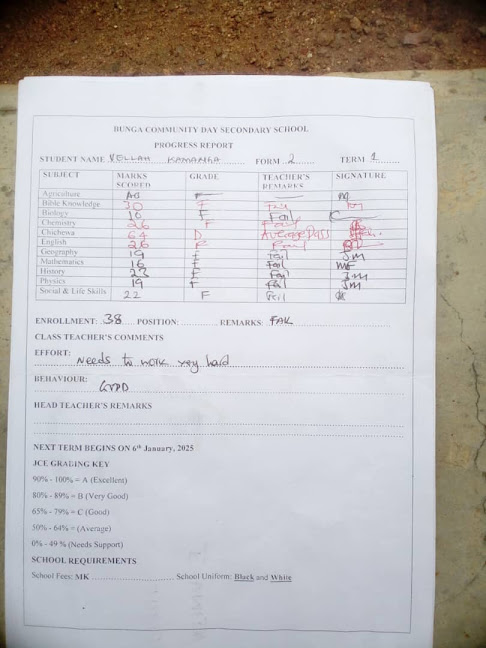 BUNGA COMMUNITY DAY SECONDARY SCHOOL
PROGRESS REPORT
STUDENT NAME VELLAH KAMANGA FORM 2 TERM 1
SUBJECT MARKS SCORED GRADE TEACHER'S REMARKS SIGNATURE
Agriculture AB F
Bible Knowledge 30 F Fail
Biology 10 F Fail
Chemistry 26 F Fail
Chichewa 64 D Average Pass
English 26 F Fail
Geography 19 F Fail JM
Mathematics 16 F Fail MF
History 23 F Fail JM
Physics 19 F Fail JM
Social & Life Skills 22 F Fail
ENROLLMENT: 38 POSITION: REMARKS: FAIL
CLASS TEACHER'S COMMENTS
EFFORT: Needs to work very hard
BEHAVIOUR: GOOD
HEAD TEACHER'S REMARKS
NEXT TERM BEGINS ON 6th January, 2025
JCE GRADING KEY
90% - 100% = A (Excellent)
80% - 89% = B (Very Good)
65% - 79% = C (Good)
50% - 64% = (Average)
0% - 49 % (Needs Support)
SCHOOL REQUIREMENTS
School Fees: MK School Uniform: Black and White